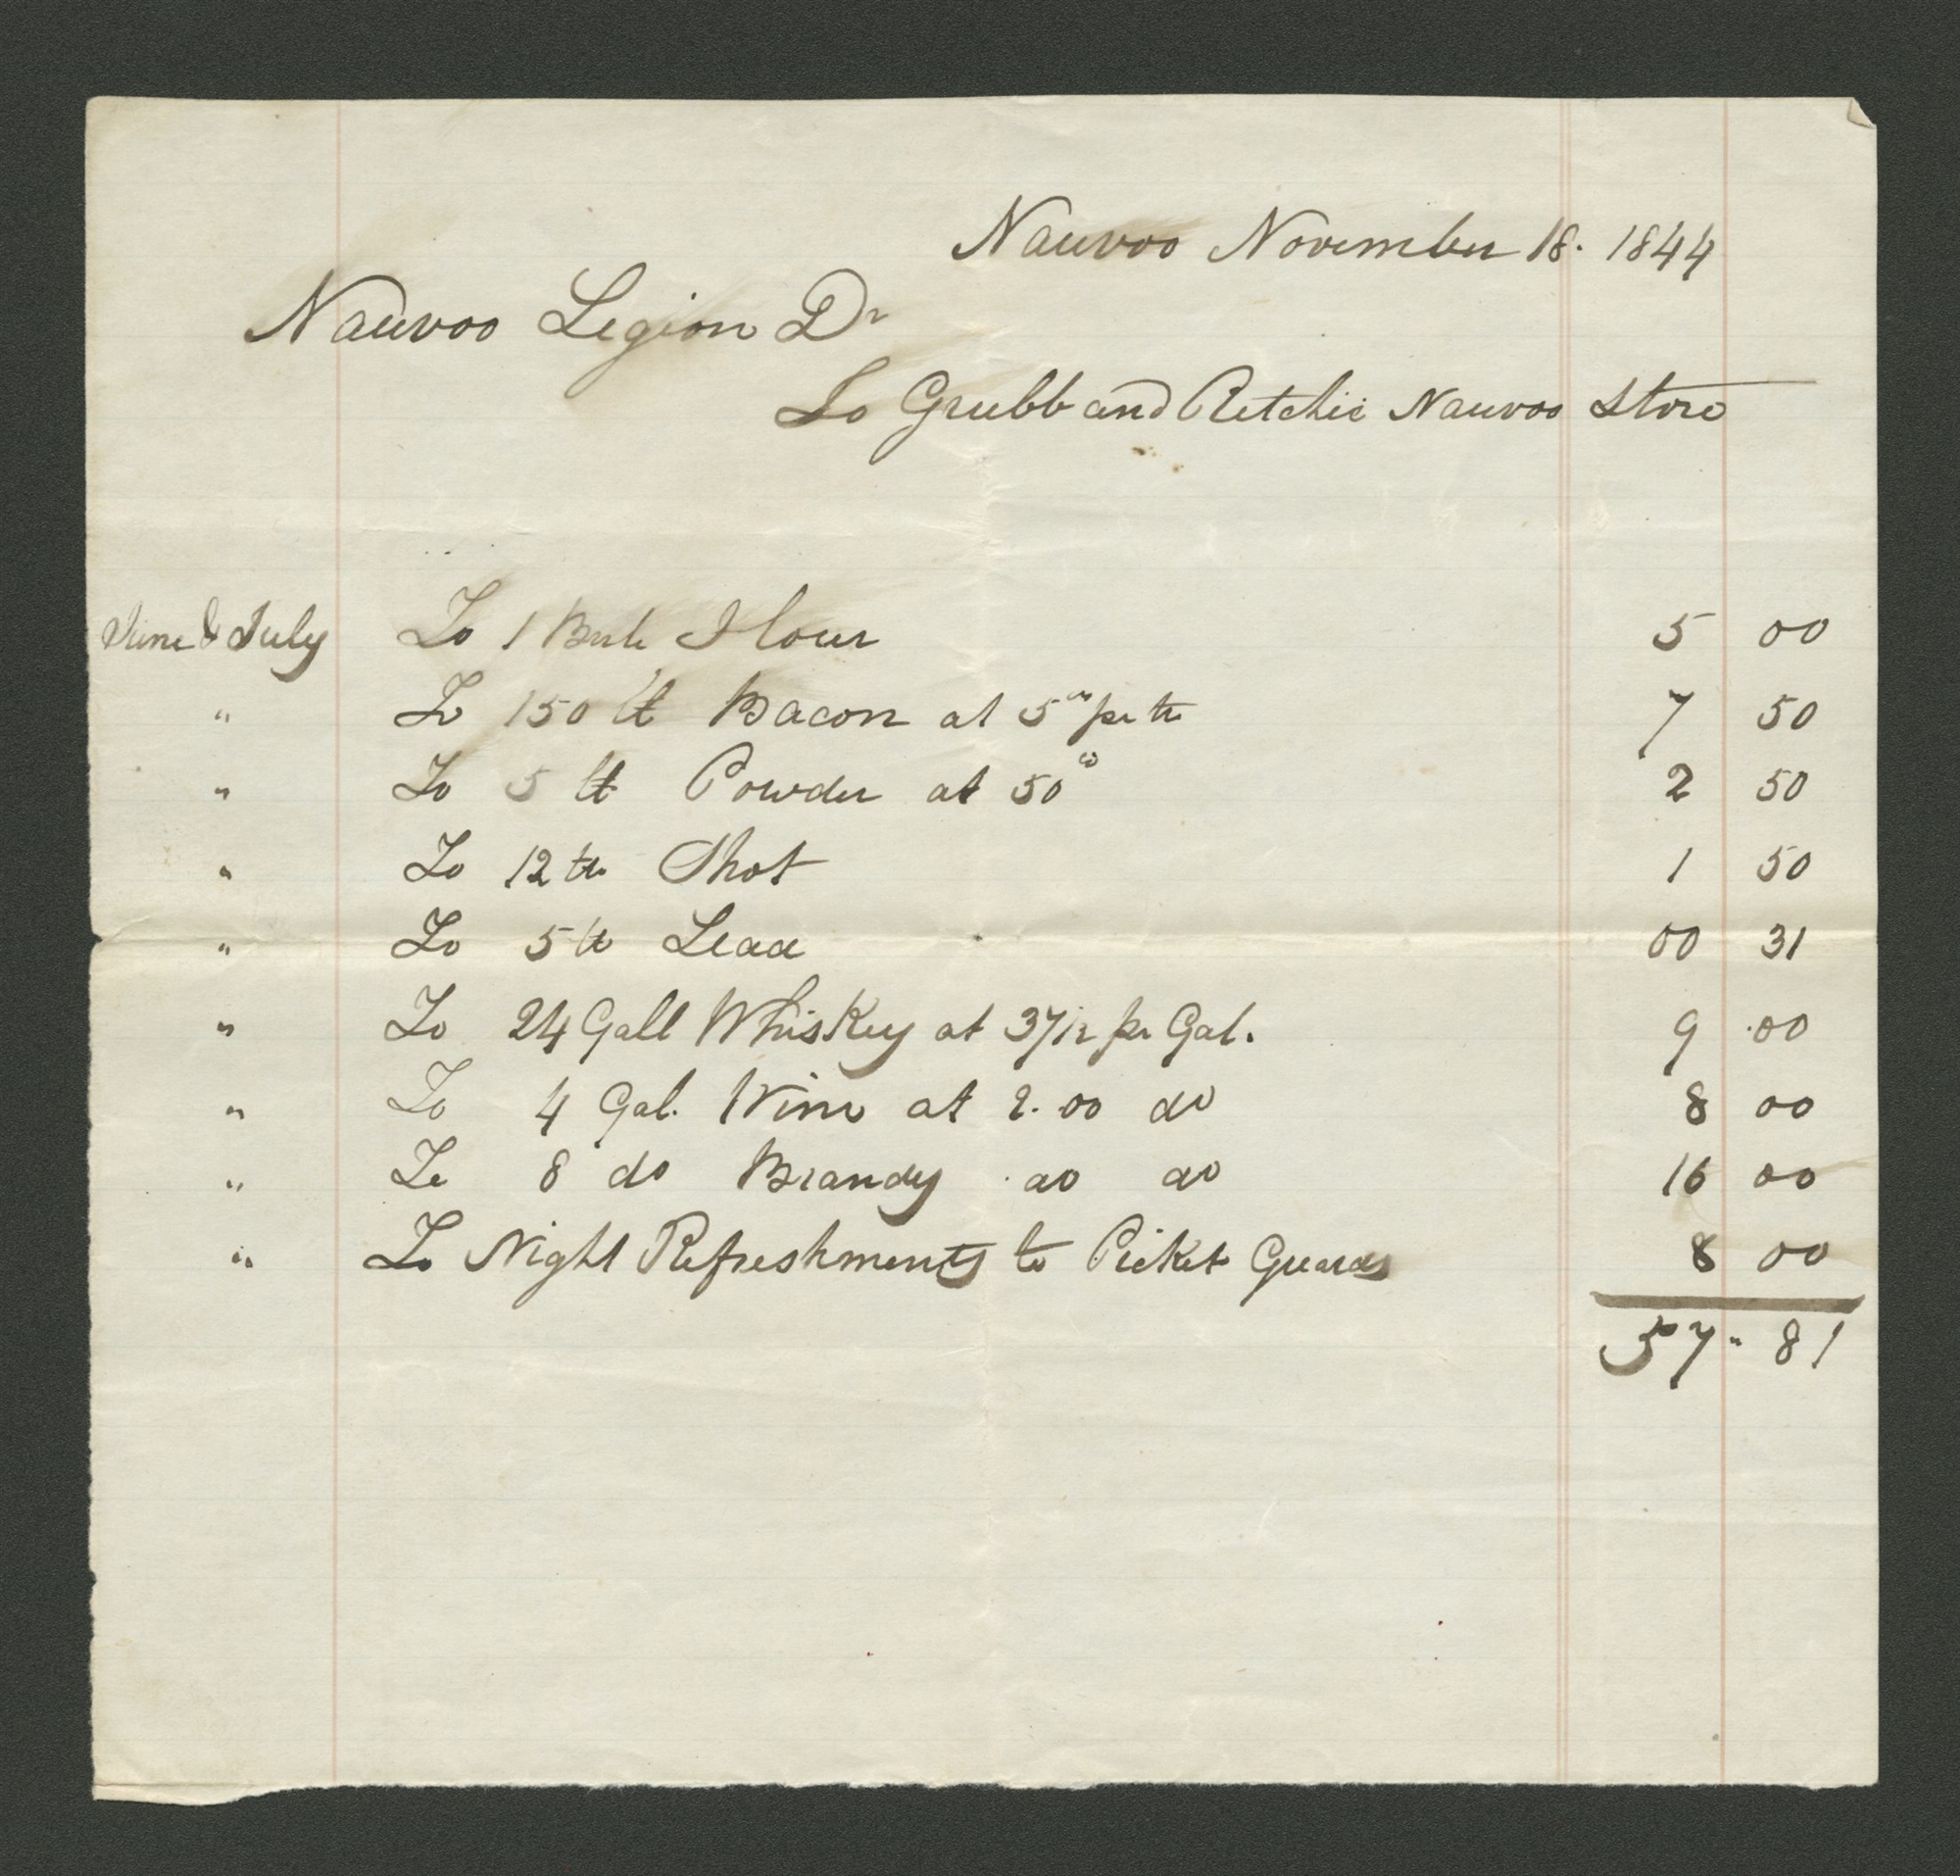 Nauvoo November 18. 1844
Nauvoo Legion Dr
To Grubb and Ritchie Nauvoo Store
June & July To 1 Flour 5 00
" To 150 lb Bacon at 5 cts pr lb 7 50
" To 5 lb Powder at 50 cts 2 50
" To 12 lb Shot 1 50
" To 5 lb Lead 00 31
" To 24 Gall Whiskey at 37/2 pr Gal. 9 00
" To 4 Gal. Wine at 2.00 do 8 00
" To 8 do Brandy do do 16 00
" To Night Refreshments to Picket Guards 8 00
57" 81